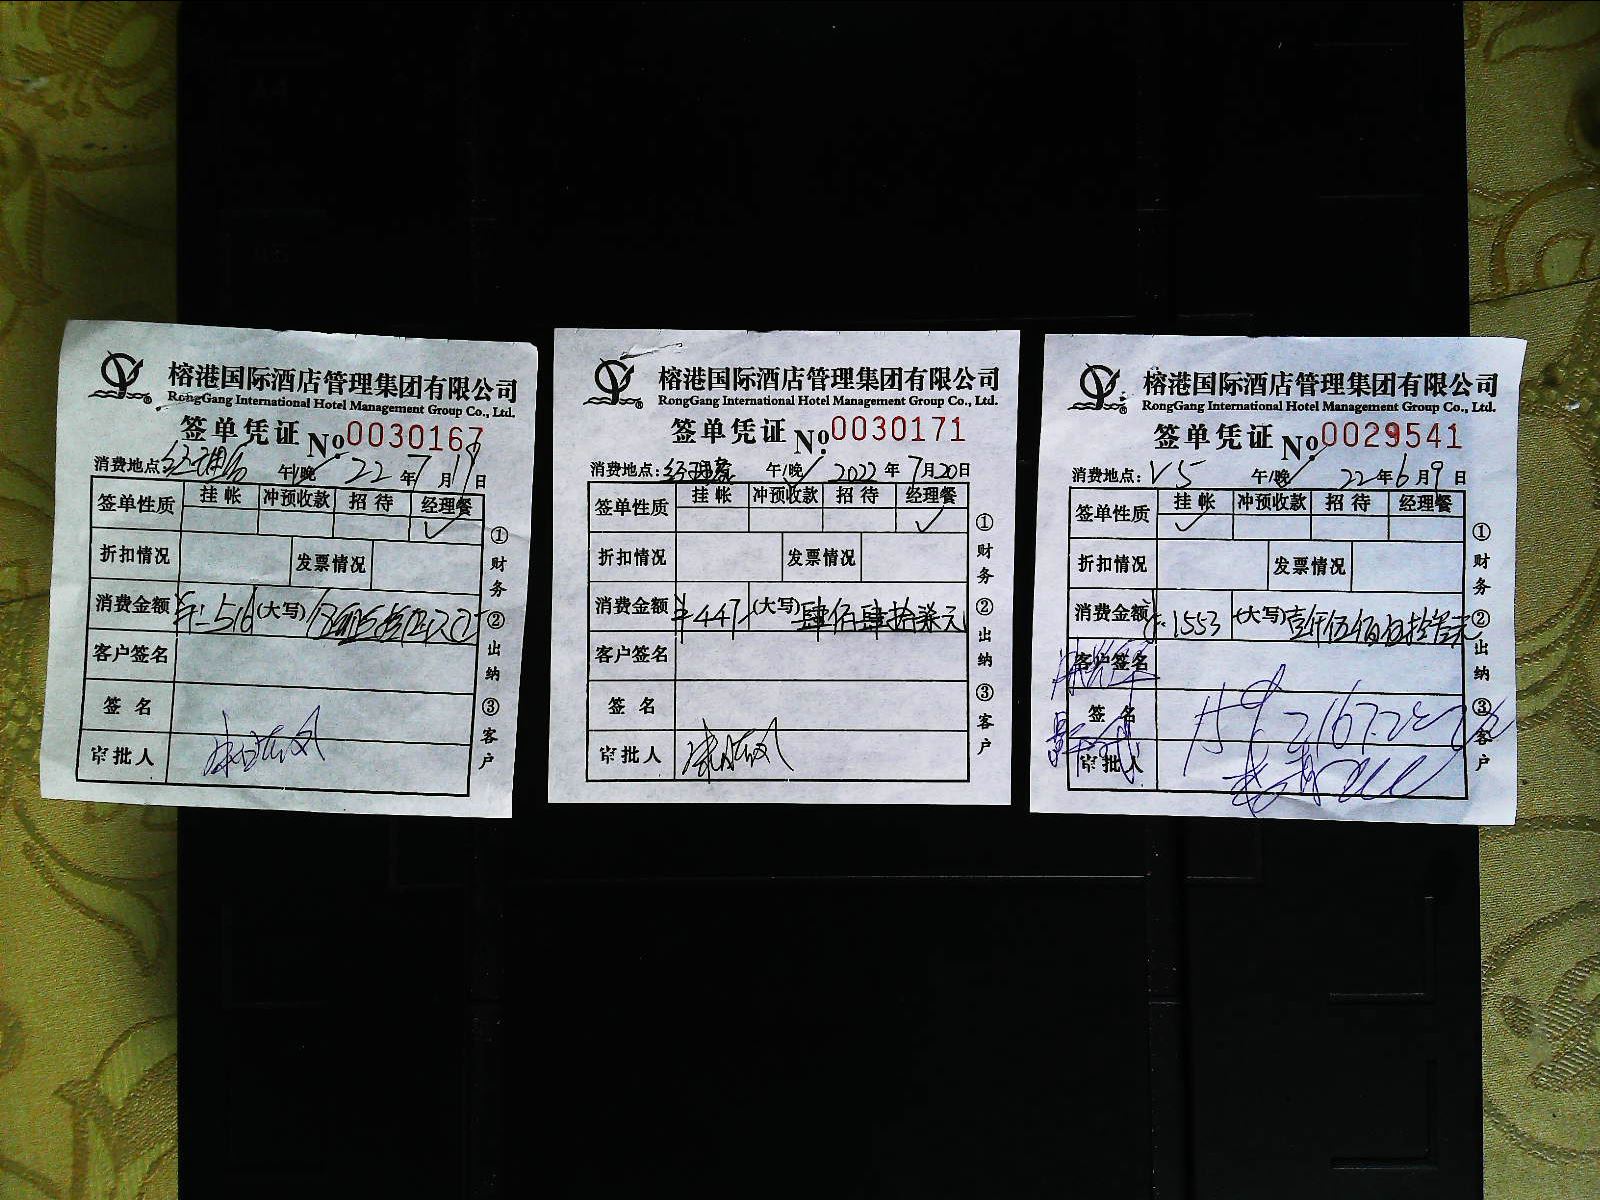 榕港国际酒店管理集团有限公司
RongGang International Hotel Management Group Co., Ltd.
签单凭证 No. 0030167
消费地点: 午/晚 22年7月19日
签单性质 挂帐 冲预收款 招待 经理餐
✓
折扣情况 发票情况
消费金额 ¥:516 (大写)
客户签名
签名
审批人
①财务 ②出纳 ③客户
榕港国际酒店管理集团有限公司
RongGang International Hotel Management Group Co., Ltd.
签单凭证 No. 0030171
消费地点:经理餐 午/晚 2022年7月20日
签单性质 挂帐 冲预收款 招待 经理餐
✓
折扣情况 发票情况
消费金额 ¥447 (大写)肆佰肆拾柒元
客户签名
签名
审批人
①财务 ②出纳 ③客户
榕港国际酒店管理集团有限公司
RongGang International Hotel Management Group Co., Ltd.
签单凭证 No. 0029541
消费地点:V5 午/晚 22年6月9日
签单性质 挂帐 冲预收款 招待 经理餐
✓
折扣情况 发票情况
消费金额 ¥:1553 (大写)壹仟伍佰伍拾叁元
客户签名
签名
审批人
①财务 ②出纳 ③客户